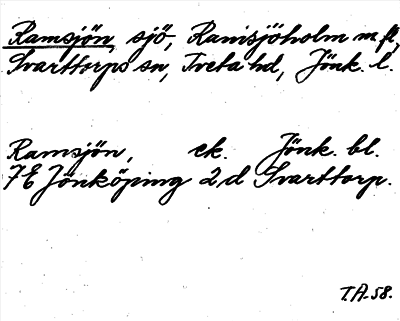 Ramsjön, sjö, Ramsjöholm m fl,
Svarttorps sn, Tveta hd, Jönk. l.
Ramsjön, ek. Jönk. bl.
7E Jönköping 2d Svarttorp.
T.A. 58.